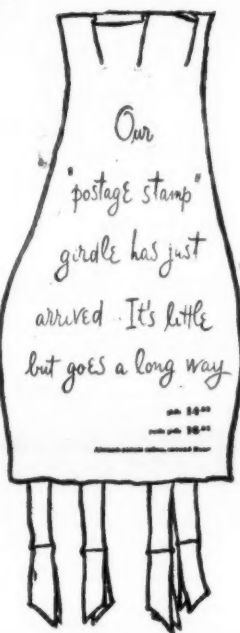 Our
"postage stamp"
girdle has just
arrived. It's little
but goes a long way